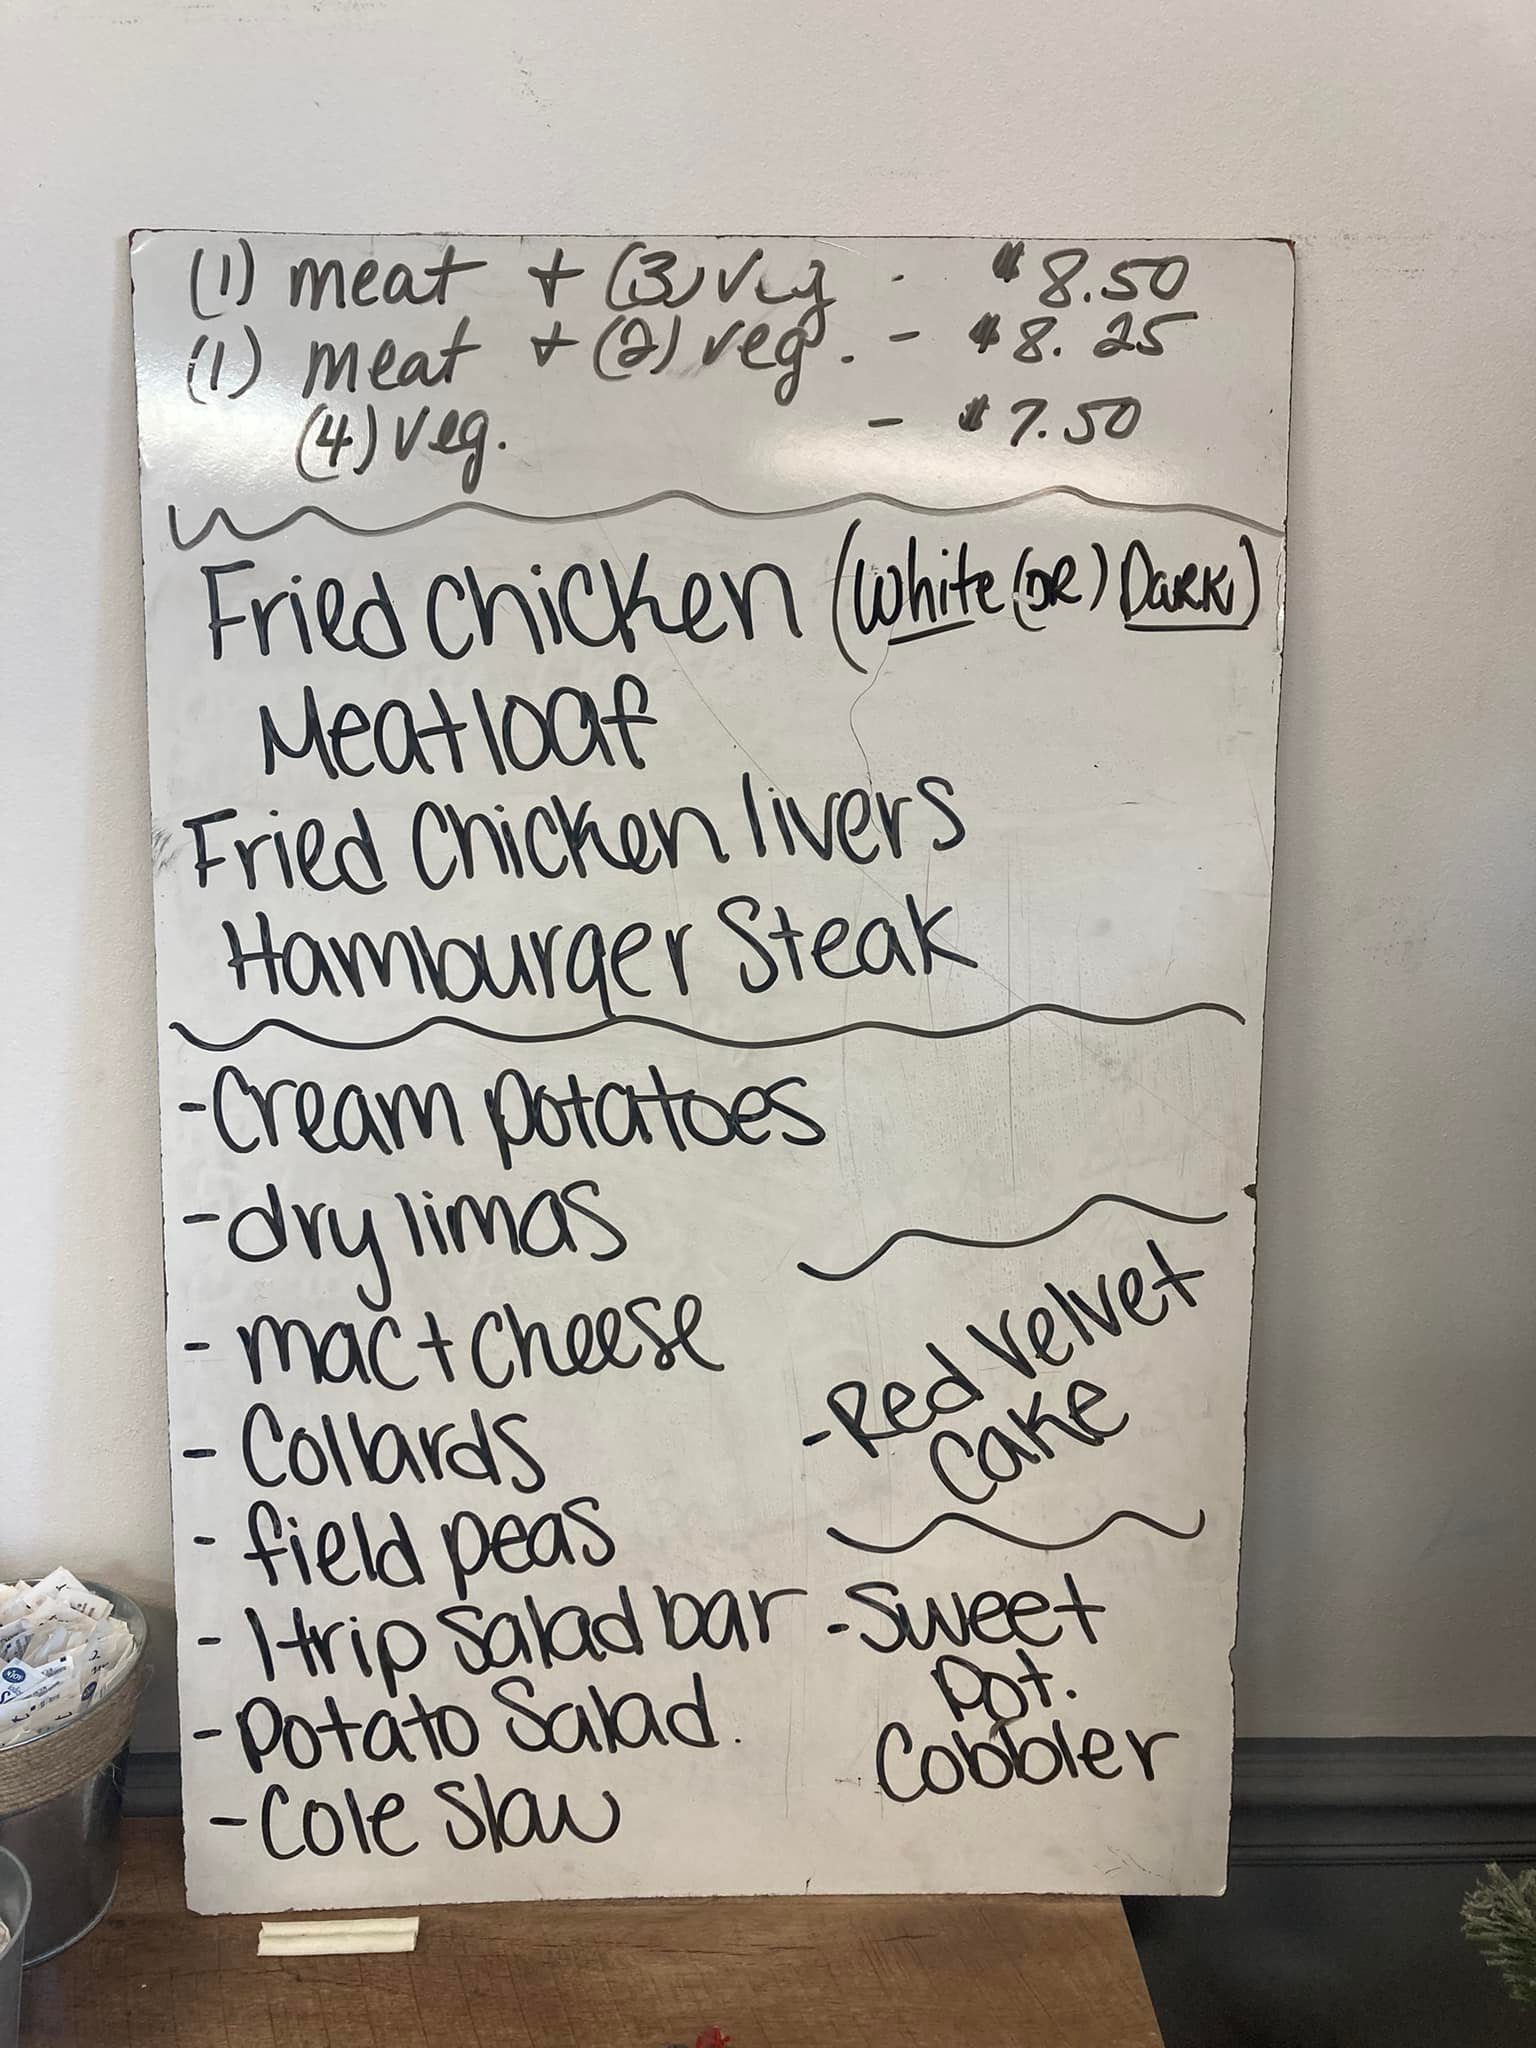 (1) meat + (3) veg - $8.50
(1) meat + (2) veg. - $8.25
(4) veg. - $7.50
Fried Chicken (White (OR) DARK)
Meatloaf
Fried Chicken livers
Hamburger Steak
- Cream potatoes
- dry limas
- mac + cheese
- Collards
- field peas
- 1 trip salad bar
- Potato Salad.
- Cole Slaw
- Red Velvet
Cake
- Sweet
Pot.
Cobbler